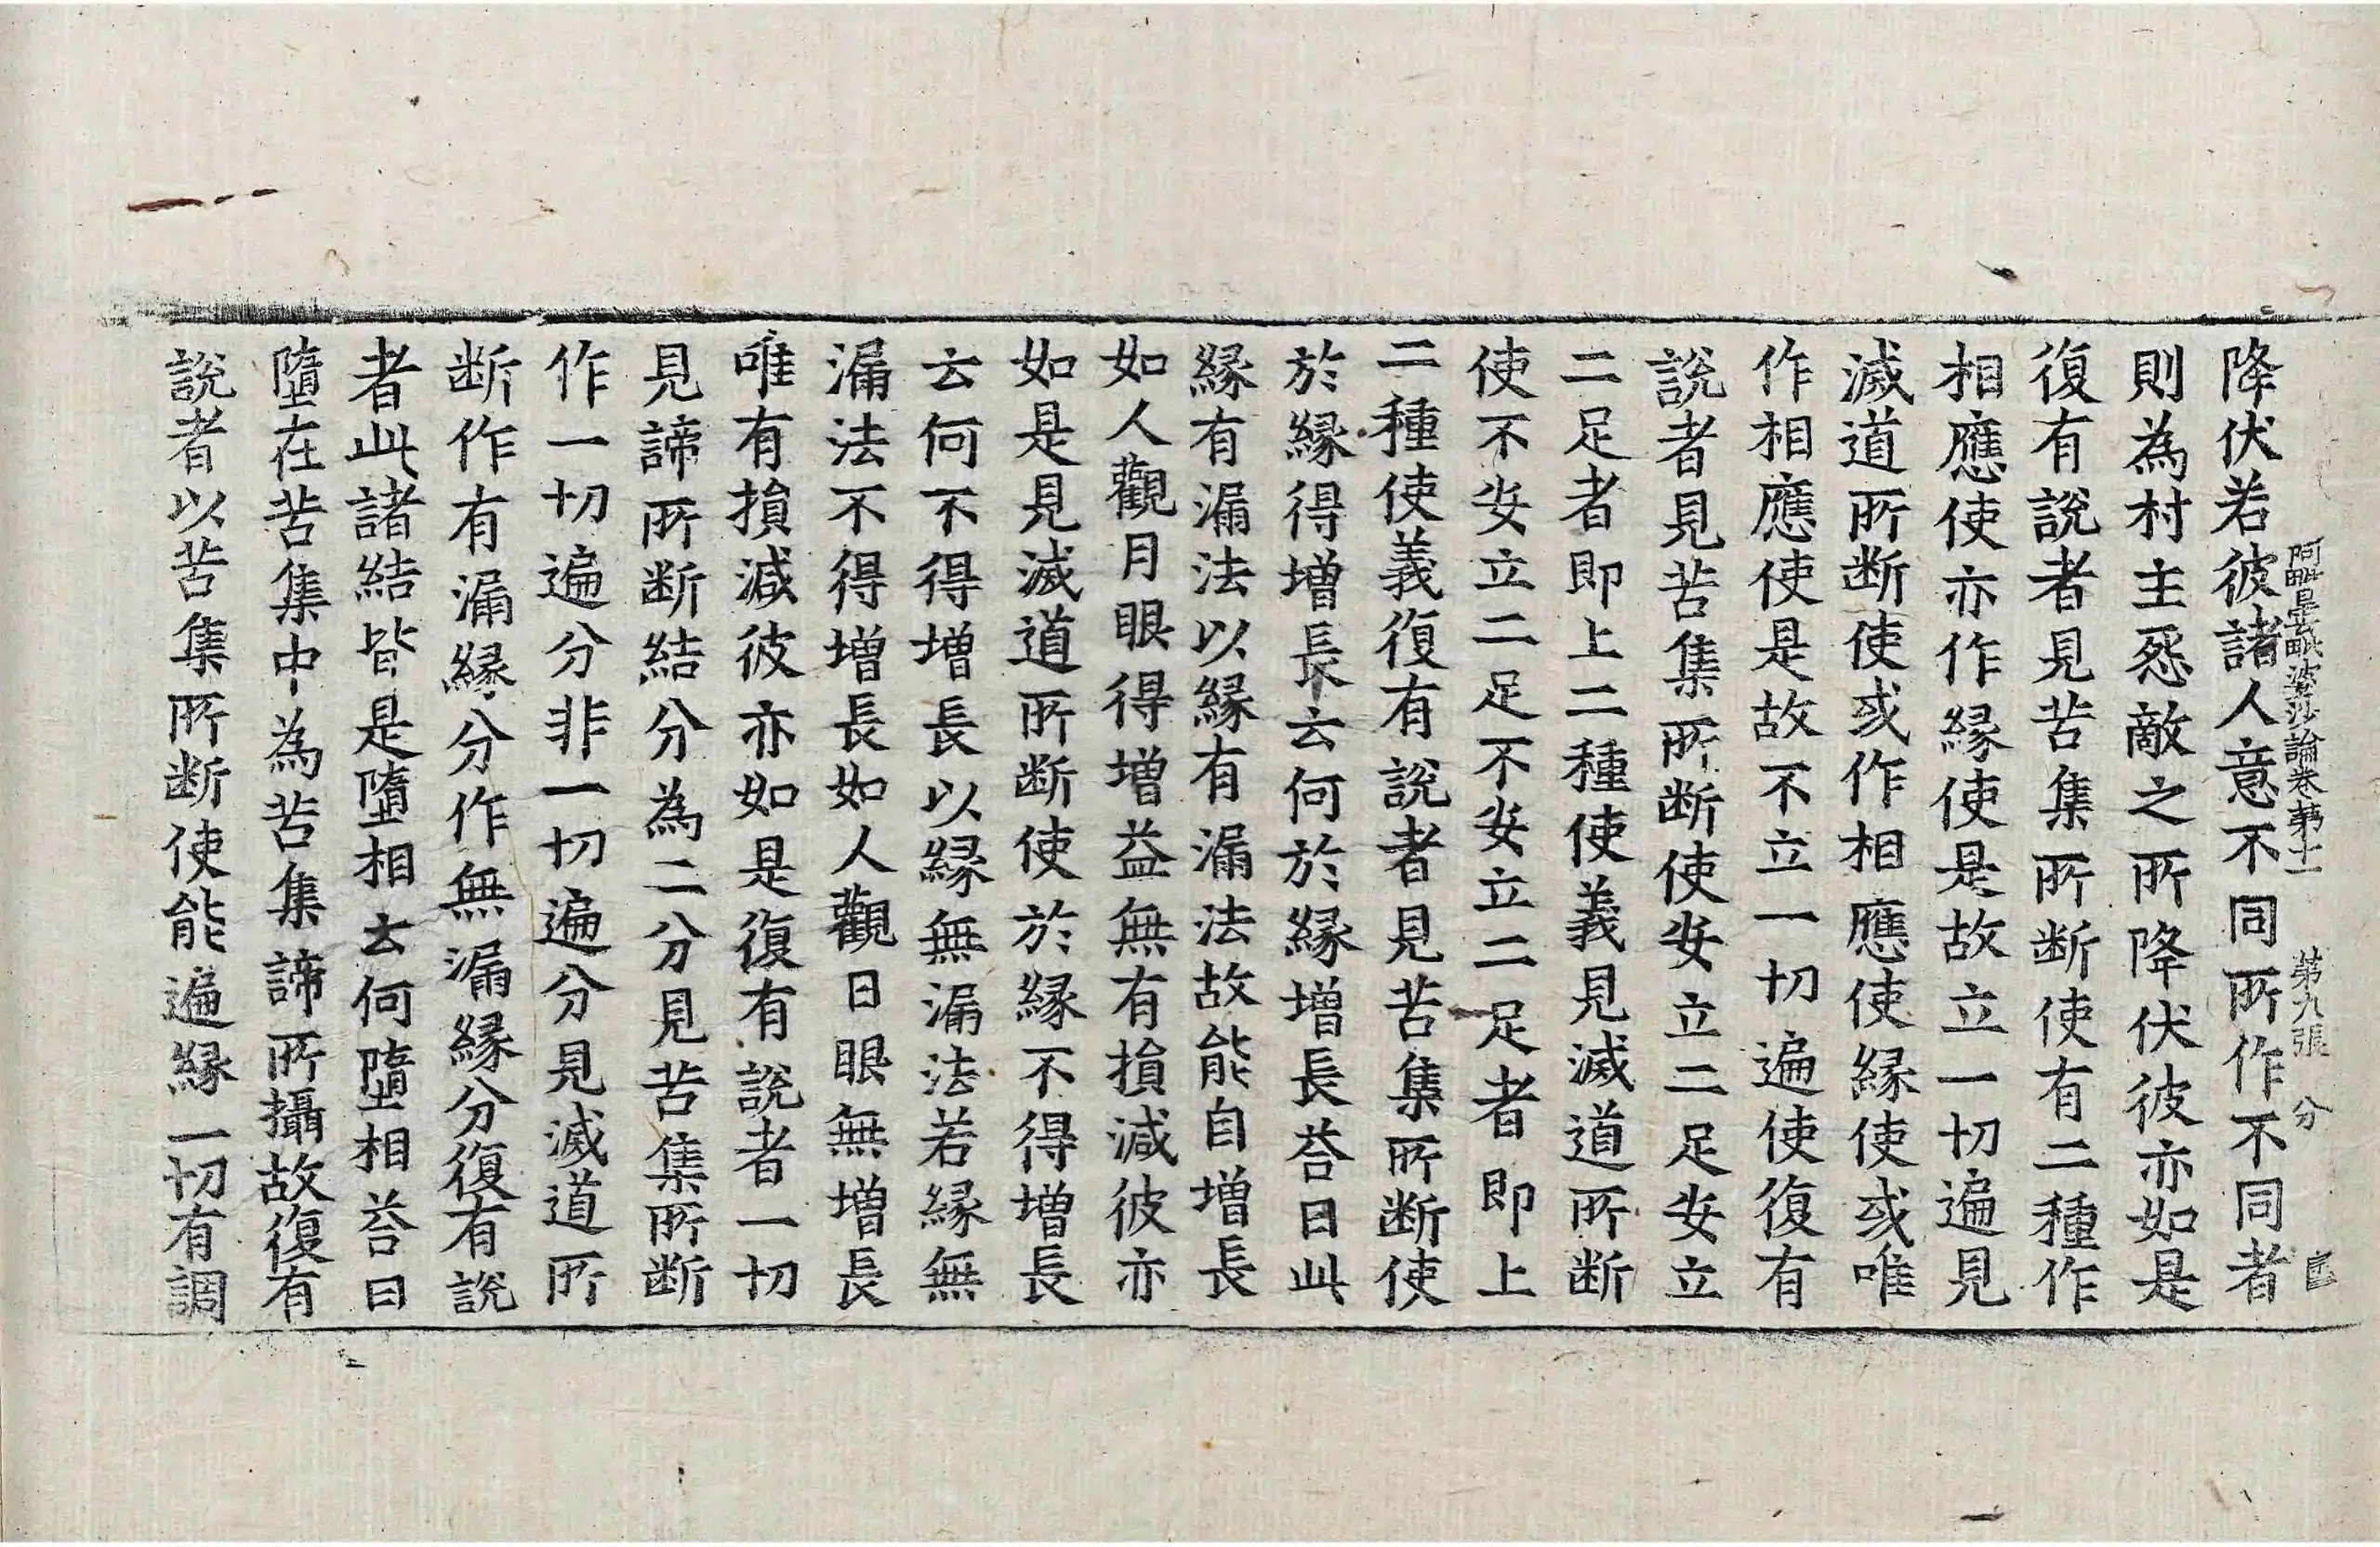 阿毗曇毗婆沙論卷第十一　第九張　分
降伏若彼諸人意不同所作不同者
則為村主怨敵之所降伏彼亦如是
復有說者見苦集所断使有二種作
相應使亦作緣使是故立一切遍見
滅道所断使或作相應使緣使或唯
作相應使是故不立一切遍使復有
說者見苦集所断使安立二足安立
二足者即上二種使義見滅道所断
使不安立二足不安立二足者即上
二種使義復有說者見苦集所断使
於緣得增長云何於緣增長荅曰此
緣有漏法以緣有漏法故能自增長
如人觀月眼得增益無有損減彼亦
如是見滅道所断使於緣不得增長
云何不得增長以緣無漏法若緣無
漏法不得增長如人觀日眼無增長
唯有損減彼亦如是復有說者一切
見諦所断結分為二分見苦集所断
作一切遍分非一切遍分見滅道所
断作有漏緣分作無漏緣分復有說
者此諸結皆是墮相云何墮相荅曰
墮在苦集中為苦集諦所攝故復有
說者以苦集所断使能遍緣一切有調